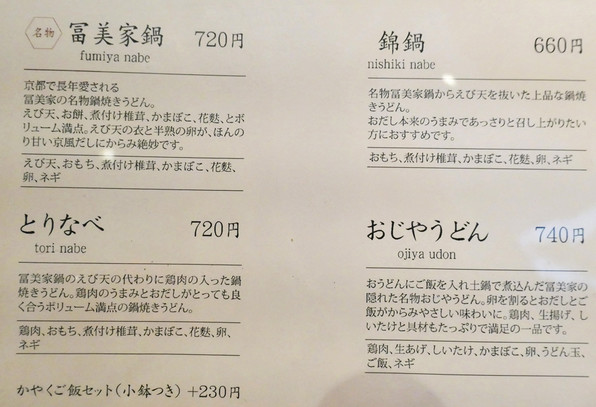 名物 冨美家鍋 720円
fumiya nabe
京都で長年愛される
冨美家の名物鍋焼きうどん。
えび天、お餅、煮付け椎茸、かまぼこ、花麩、とボ
リューム満点。えび天の衣と半熟の卵が、ほんの
り甘い京風だしにからみ絶妙です。
えび天、おもち、煮付け椎茸、かまぼこ、花麩、
卵、ネギ
とりなべ 720円
tori nabe
冨美家鍋のえび天の代わりに鶏肉の入った鍋
焼きうどん。鶏肉のうまみとおだしがとっても良
く合うボリューム満点の鍋焼きうどん。
鶏肉、おもち、煮付け椎茸、かまぼこ、花麩、卵、
ネギ
かやくご飯セット(小鉢つき) +230円
錦鍋 660円
nishiki nabe
名物冨美家鍋からえび天を抜いた上品な鍋焼
きうどん。
おだし本来のうまみであっさりと召し上がりたい
方におすすめです。
おもち、煮付け椎茸、かまぼこ、花麩、卵、ネギ
おじやうどん 740円
ojiya udon
おうどんにご飯を入れ土鍋で煮込んだ冨美家の
隠れた名物おじやうどん。卵を割るとおだしとご
飯がからみやさしい味わいに。鶏肉、生揚げ、し
いたけと具材もたっぷりで満足の一品です。
鶏肉、生あげ、しいたけ、かまぼこ、卵、うどん玉、
ご飯、ネギ